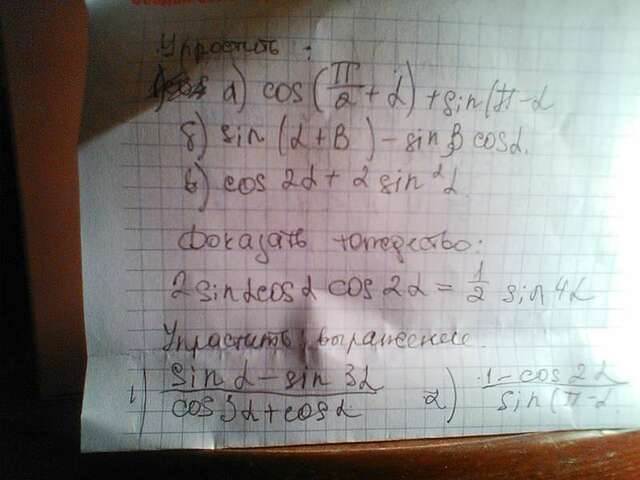 Упростить:
а) cos(π/2 + α) + sin(π - α
б) sin(α + β) - sin β cos α.
в) cos 2α + 2 sin²α
Доказать тотдество:
2 sin α cos α cos 2α = 1/2 sin 4α
Упрастить выражение.
1) sin α - sin 3α / cos 3α + cos α 2) 1 - cos 2α / sin(π - α